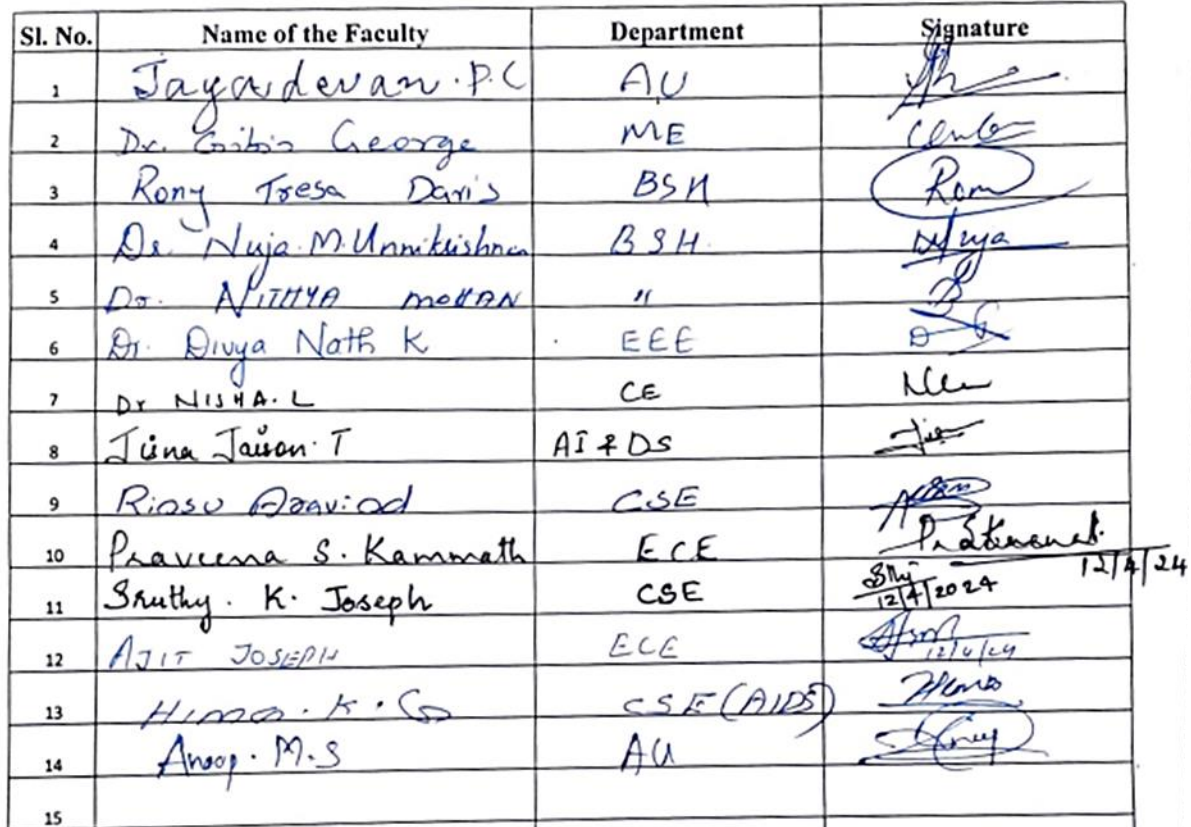 Sl. No. Name of the Faculty Department Signature
1 Jayadevan. P. C AU
2 Dr. Gibin George ME
3 Rony Tresa Davis BSH Rony
4 Dr. Nuja. M. Unnikrishnan BSH. Nuja
5 Dr. NITHYA MOHAN "
6 Dr. Divya Nath K EEE
7 Dr NISHA. L CE
8 Jisna Jaison. T AI & DS
9 Rinsu Aravind CSE
10 Praveena S. Kammath ECE 12/4/24
11 Sruthy. K. Joseph CSE 12/4/2024
12 AJIT JOSEPH ECE 12/4/24
13 Hima. K. CSE (AIDS)
14 Anoop. M.S AU
15